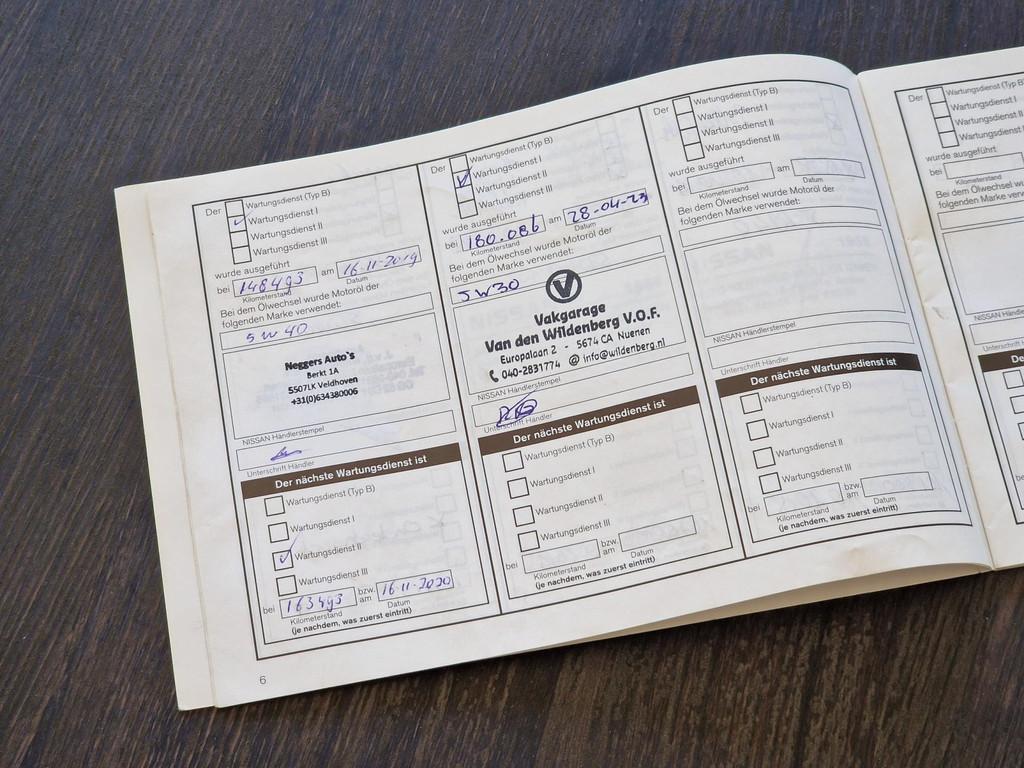 Der Wartungsdienst (Typ B)
Wartungsdienst I
Wartungsdienst II
Wartungsdienst III
wurde ausgeführt
bei 148493 am 16-11-2019
Kilometerstand Datum
Bei dem Ölwechsel wurde Motoröl der
folgenden Marke verwendet:
5W40
Neggers Auto's
Berkt 1A
5507LK Veldhoven
+31(0)634380006
NISSAN Händlerstempel
Unterschrift Händler
Der nächste Wartungsdienst ist
Wartungsdienst (Typ B)
Wartungsdienst I
Wartungsdienst II
Wartungsdienst III
bei 163493 bzw. am 16-11-2020
Kilometerstand Datum
(je nachdem, was zuerst eintritt)
6
Der Wartungsdienst (Typ B)
Wartungsdienst I
Wartungsdienst II
Wartungsdienst III
wurde ausgeführt
bei 180.086 am 28-04-23
Kilometerstand Datum
Bei dem Ölwechsel wurde Motoröl der
folgenden Marke verwendet:
5W30
Vakgarage
Van den Wildenberg V.O.F.
Europalaan 2 - 5674 CA Nuenen
040-2831774 @ info@wildenberg.nl
NISSAN Händlerstempel
Unterschrift Händler
Der nächste Wartungsdienst ist
Wartungsdienst (Typ B)
Wartungsdienst I
Wartungsdienst II
Wartungsdienst III
bei bzw. am
Kilometerstand Datum
(je nachdem, was zuerst eintritt)
Der Wartungsdienst (Typ B)
Wartungsdienst I
Wartungsdienst II
Wartungsdienst III
wurde ausgeführt
bei am
Kilometerstand Datum
Bei dem Ölwechsel wurde Motoröl der
folgenden Marke verwendet:
NISSAN Händlerstempel
Unterschrift Händler
Der nächste Wartungsdienst ist
Wartungsdienst (Typ B)
Wartungsdienst I
Wartungsdienst II
Wartungsdienst III
bei bzw. am
Kilometerstand Datum
(je nachdem, was zuerst eintritt)
Der Wartungsdienst (Typ B)
Wartungsdienst I
Wartungsdienst II
Wartungsdienst
wurde ausgeführt
bei
Kilometerstand
Bei dem Ölwechsel wurde
folgenden Marke verwendet:
NISSAN
Unterschrift
bei